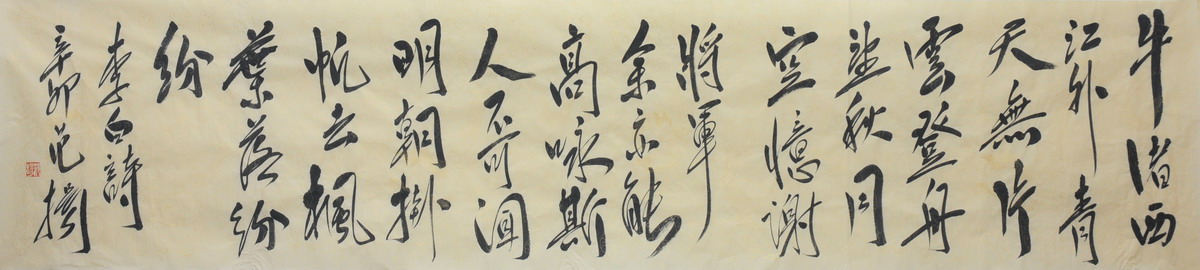 牛渚西
江夜青
天無片
雲登舟
望秋月
空憶謝
將軍
余亦能
高咏斯
人不可聞
明朝掛
帆去楓
葉落紛
紛
李白詩
辛卯范